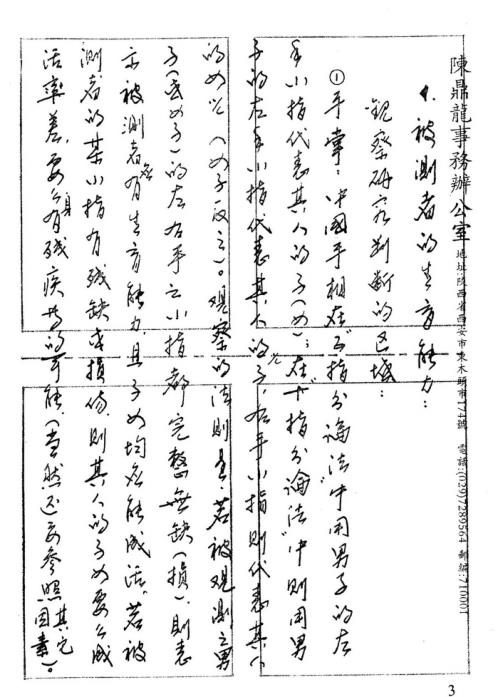 陳鼎龍事務辦公室 地址:陝西省西安市東木頭市174號 電話:(029)7289564 郵編:710001
1. 被測者的生育能力：
觀察研究判斷的区域：
①手掌：中國手相在"五指分論法"中用男子的左
手小指代表其人的子(女)；在"十指分論法"中則用男
子的左手小指代表其人的子，右手小指則代表其人
的女兒（女子反之）。观察的法則是：若被观測之男
子(或女子)的左右手之小指都完整無缺(損)，則表
示被測者有生育能力，且子女均能成活。若被
測者的某小指有殘缺或損傷，則其人的子女要么成
活率差，要么有殘疾等的可能，（当然还要参照其它因素）。
3